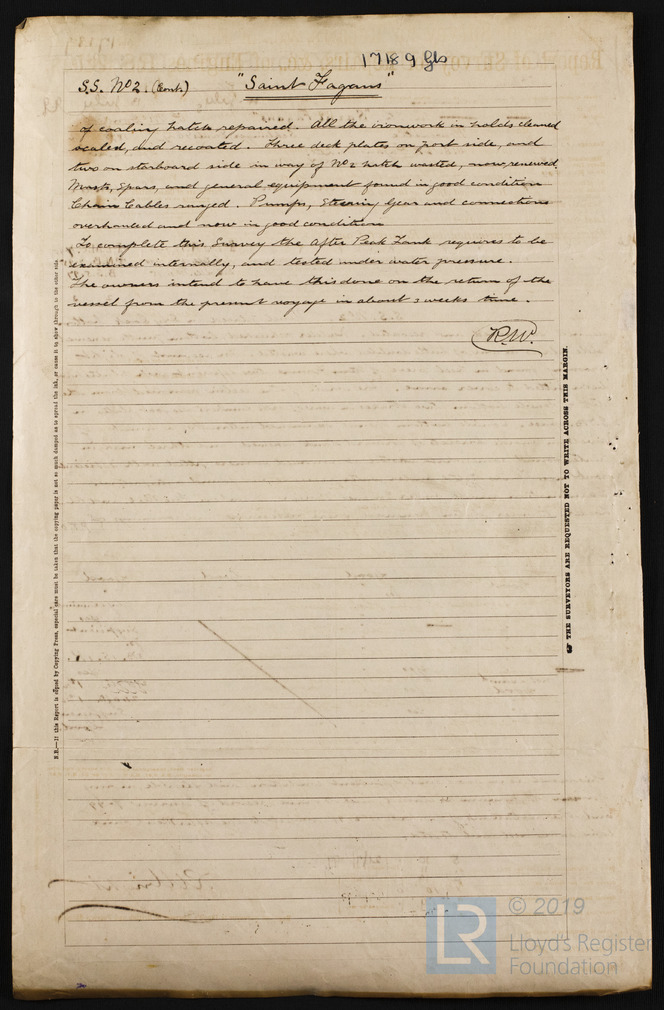 17189 Gls
S.S. No 2. (Cont.) "Saint Fagans"
of coaling hatch repaired. All the ironwork in holds cleaned
scaled, and recoated. Three deck plates on port side, and
two on starboard side in way of No 2 hatch wasted, now renewed.
Masts, Spars, and general equipment found in good condition
Chain Cables ranged. Pumps, Steering Gear and connections
overhauled and now in good condition
To complete this Survey the After Peak Tank requires to be
examined internally, and tested under water pressure.
The owners intend to have this done on the return of the
vessel from the present voyage in about 3 weeks time.
R.W.
N.B.—If this Report is copied by Copying Press, especial care must be taken that the copying paper is not so much damped as to spread the ink, or cause it to show through to the other side
THE SURVEYORS ARE REQUESTED NOT TO WRITE ACROSS THIS MARGIN.
LR
© 2019
Lloyd's Register
Foundation